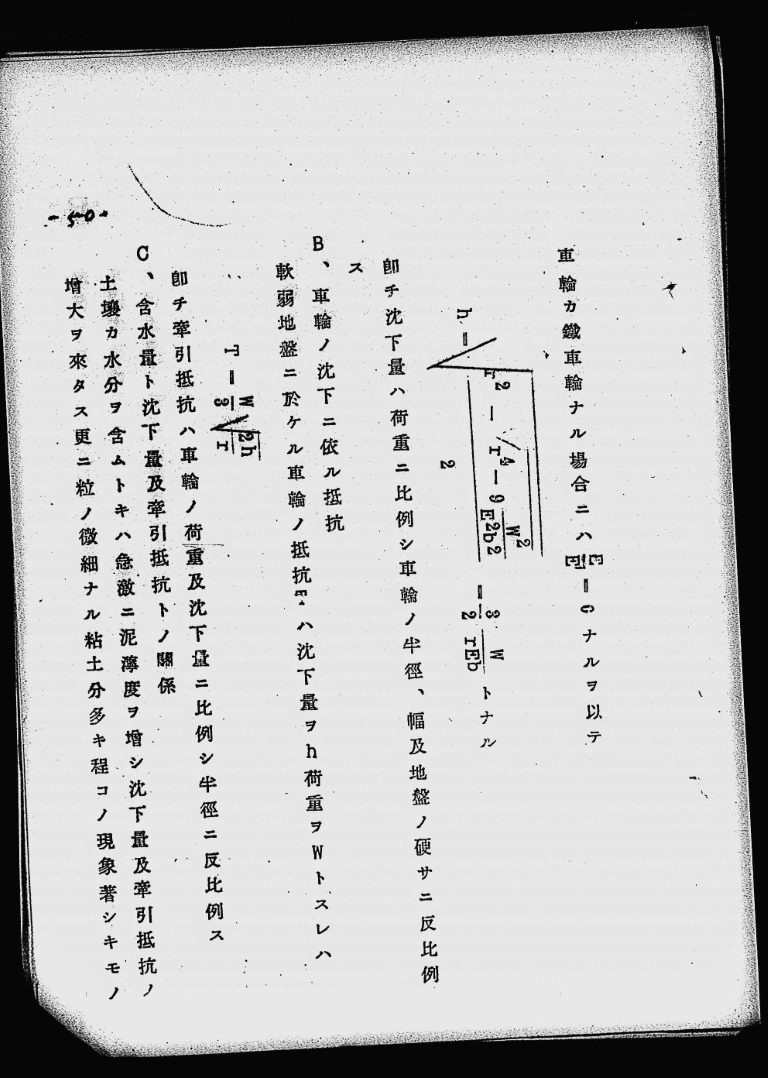 車輪カ鐵車輪ナル場合ニハ E/E' = 0 ナルヲ以テ
h = √(r² − √(r⁴ − 9/2 W²/E²b²)) = 3/2 W/rEb トナル
卽チ沈下量ハ荷重ニ比例シ車輪ノ半徑、幅及地盤ノ硬サニ反比例
ス
B、車輪ノ沈下ニ依ル抵抗
軟弱地盤ニ於ケル車輪ノ抵抗Tハ沈下量ヲh荷重ヲWトスレハ
T = W/3 √(2h/r)
卽チ牽引抵抗ハ車輪ノ荷重及沈下量ニ比例シ半徑ニ反比例ス
C、含水量ト沈下量及牽引抵抗トノ關係
土壤カ水分ヲ含ムトキハ急激ニ泥濘度ヲ增シ沈下量及牽引抵抗ノ
增大ヲ來タス更ニ粒ノ微細ナル粘土分多キ程コノ現象著シキモノ
-50-